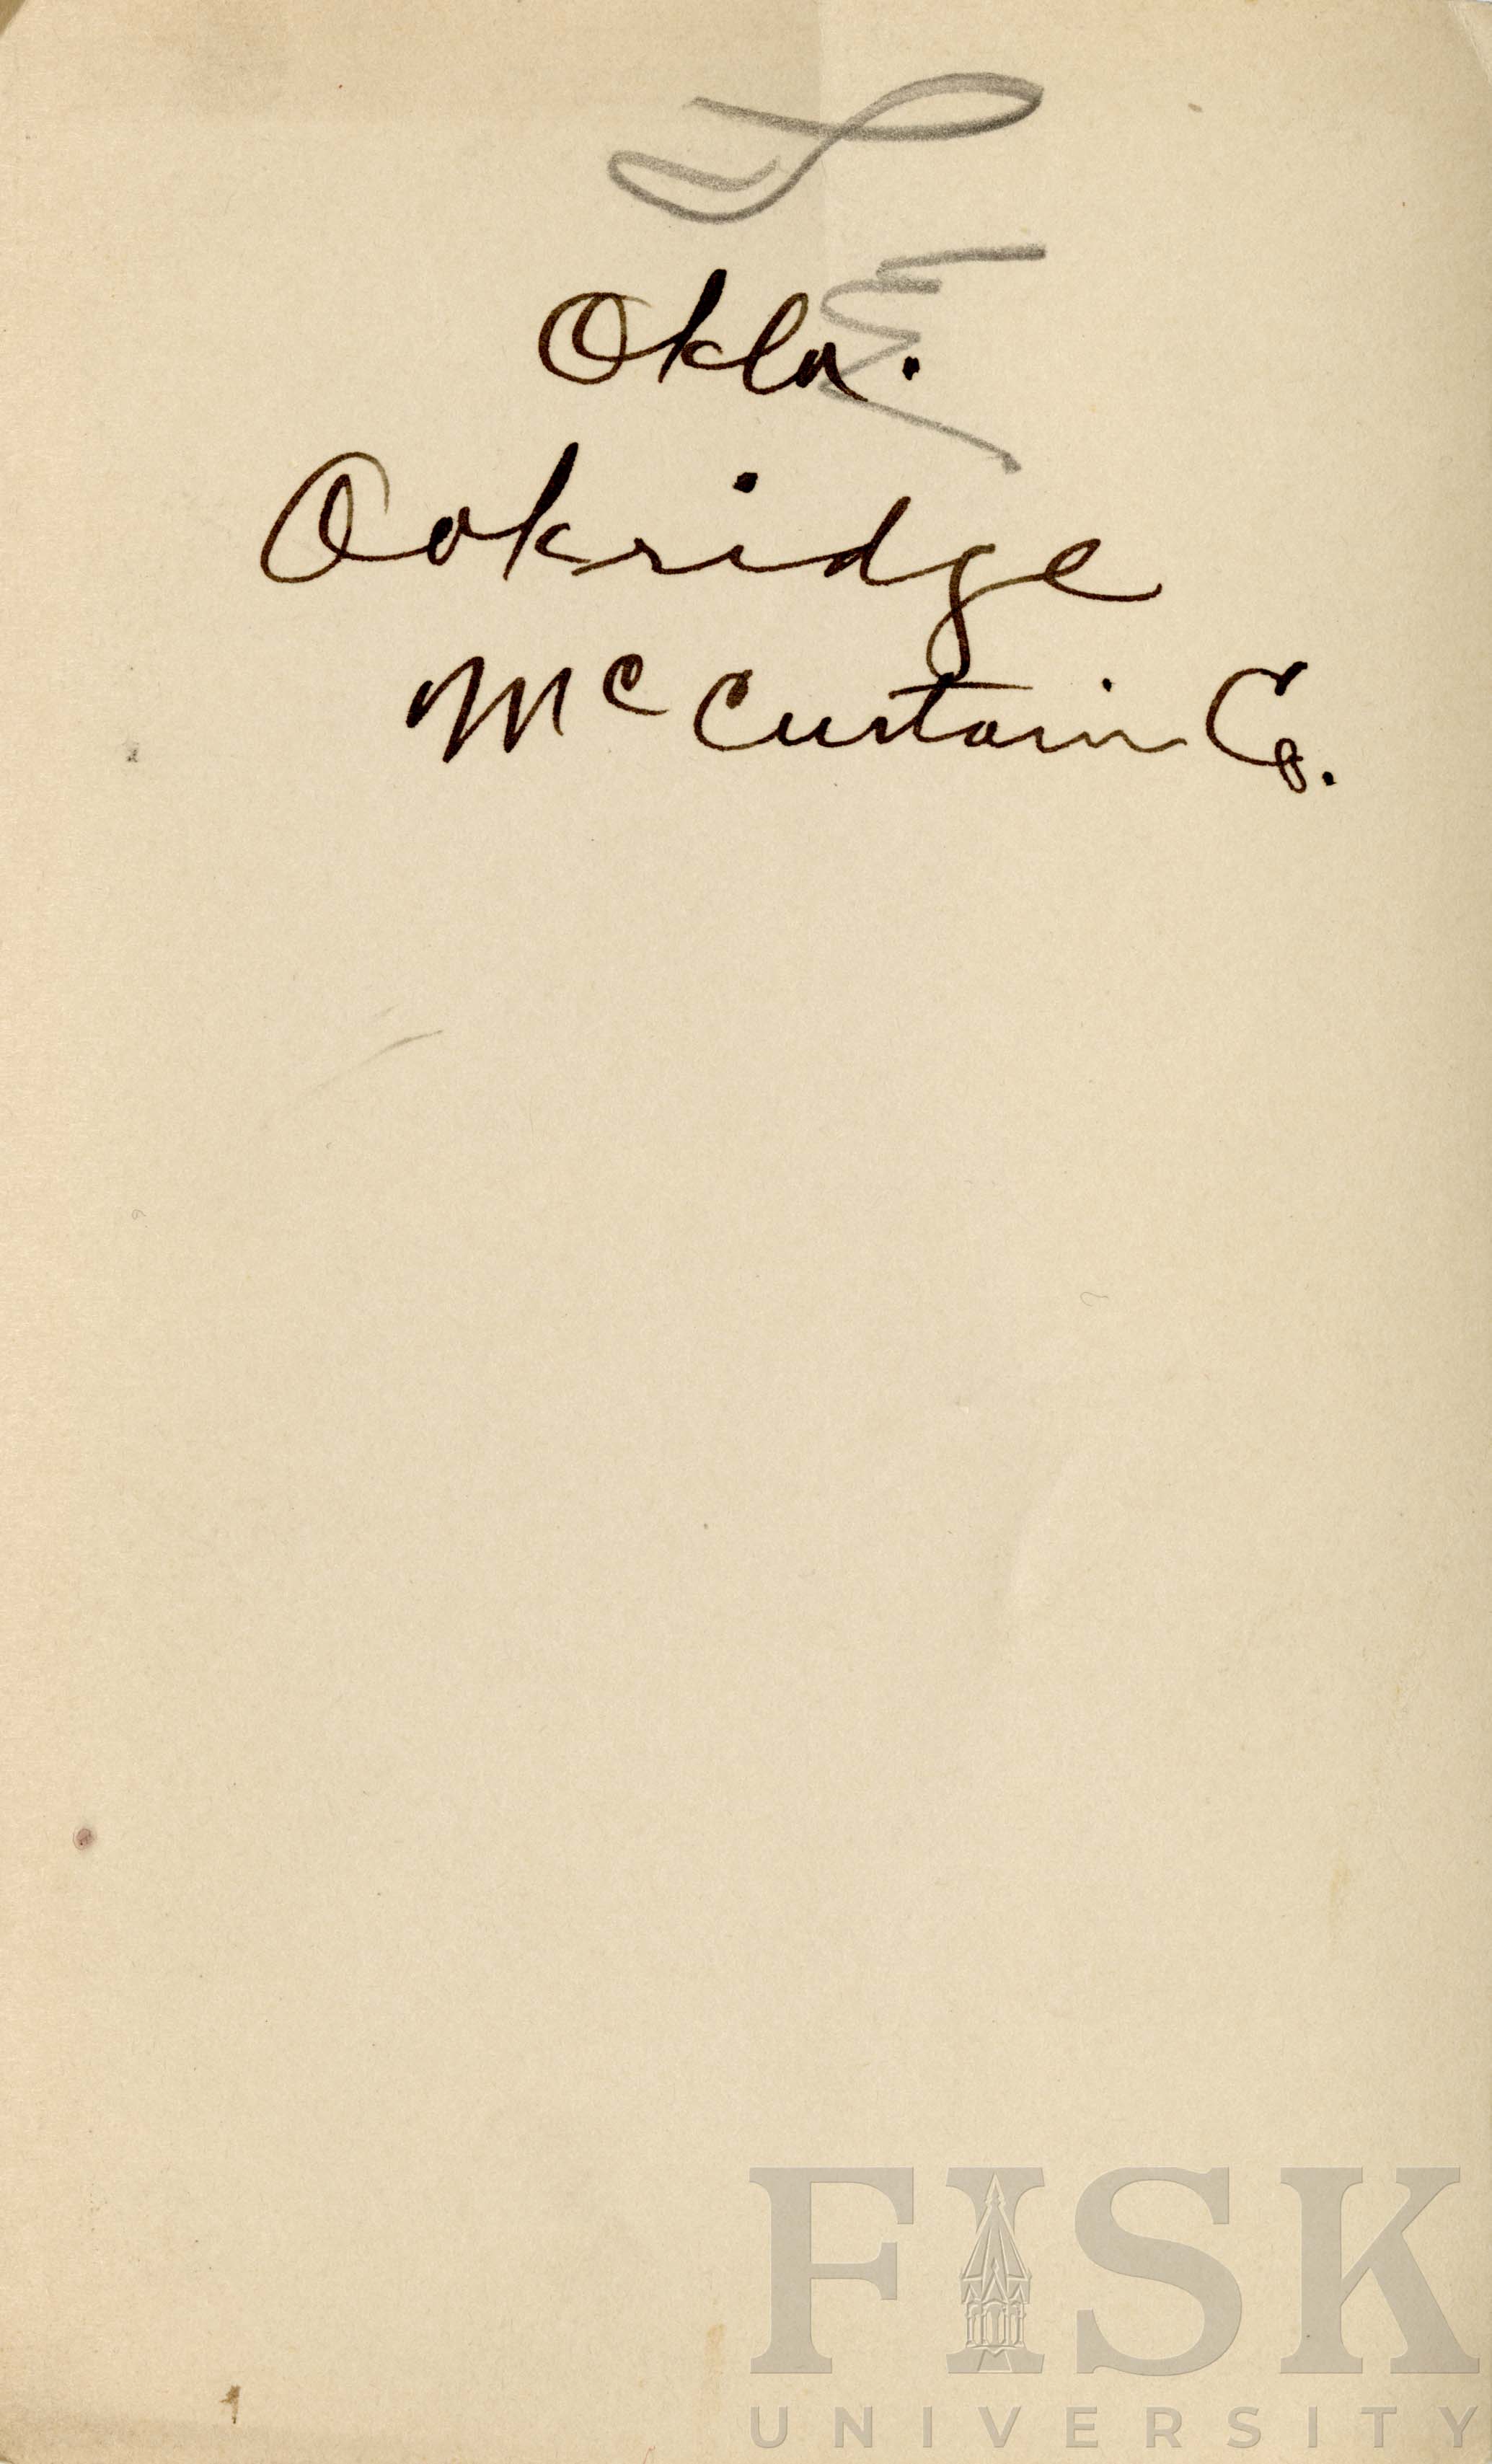 Okla.
Oakridge
McCurtain Co.
FISK
UNIVERSITY